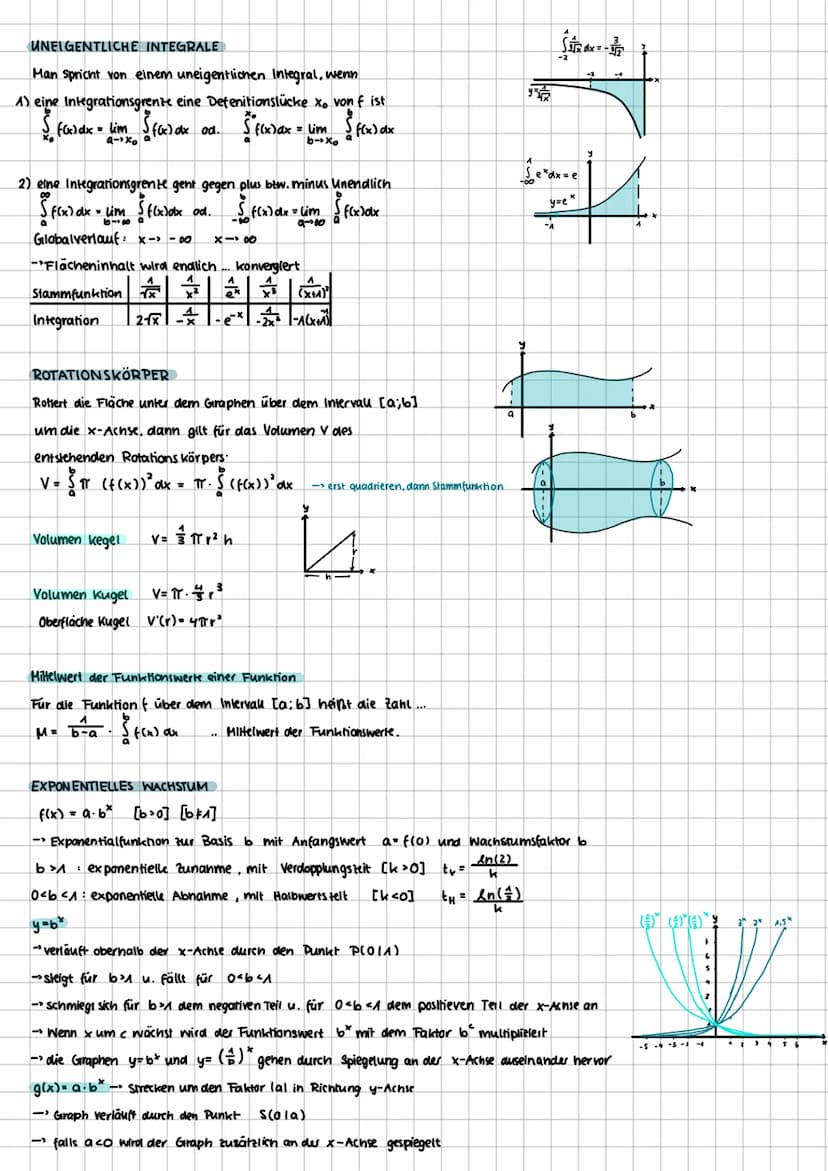 UNEIGENTLICHE INTEGRALE
Man spricht von einem uneigentlichen Integral, wenn
1) eine Integrationsgrenze eine Defenitionslücke x₀ von f ist
∫_{x₀}^{b} f(x) dx = lim_{a→x₀} ∫_{a}^{b} f(x) dx od. ∫_{a}^{x₀} f(x) dx = lim_{b→x₀} ∫_{a}^{b} f(x) dx
y
x
-2 -1
2) eine Integrationsgrenze geht gegen plus bzw. minus Unendlich
∫_{a}^{∞} f(x) dx = lim_{b→∞} ∫_{a}^{b} f(x) dx od. ∫_{-∞}^{b} f(x) dx = lim_{a→∞} ∫_{a}^{b} f(x) dx
∫_{-∞}^{1} e^x dx = e
y=e^x
y
x
-1 1
Globalverlauf: x→ -∞ x→ ∞
→Flächeninhalt wird endlich … konvergiert
Stammfunktion | 1/√x | 1/x² | 1/e^x | 1/x³ | 1/(x+1)²
Integration | 2√x | -1/x | -e^-x | -1/2x² | -1(x+1)
ROTATIONSKÖRPER
Rotiert die Fläche unter dem Graphen über dem Intervall [a;b]
um die x-Achse, dann gilt für das Volumen V des
entstehenden Rotationskörpers:
V = ∫_{a}^{b} π (f(x))² dx = π · ∫_{a}^{b} (f(x))² dx → erst quadrieren, dann Stammfunktion
y
a b x
y
a b x
Volumen Kegel V = 1/3 π r² h
y
r
h x
Volumen Kugel V = π · 4/3 r³
Oberfläche Kugel V'(r) = 4πr²
Mittelwert der Funktionswerte einer Funktion
Für die Funktion f über dem Intervall [a;b] heißt die Zahl …
M = 1/(b-a) · ∫_{a}^{b} f(x) dx .. Mittelwert der Funktionswerte.
EXPONENTIELLES WACHSTUM
f(x) = a·b^x [b>0] [b≠1]
→ Exponentialfunktion zur Basis b mit Anfangswert a= f(0) und Wachstumsfaktor b
b>1 : exponentielle Zunahme, mit Verdopplungszeit [k>0] t_V = ln(2)/k
0<b<1 : exponentielle Abnahme, mit Halbwertszeit [k<0] t_H = ln(1/2)/k
y=b^x
→verläuft oberhalb der x-Achse durch den Punkt P(0|1)
→steigt für b>1 u. fällt für 0<b<1
→ schmiegt sich für b>1 dem negativen Teil u. für 0<b<1 dem positieven Teil der x-Achse an
→ Wenn x um c wächst wird der Funktionswert b^x mit dem Faktor b^c multipliziert
→ die Graphen y=b^x und y= (1/b)^x gehen durch Spiegelung an der x-Achse auseinander hervor
g(x)= a·b^x → Strecken um den Faktor |a| in Richtung y-Achse
→ Graph verläuft durch den Punkt S(0|a)
→ falls a<0 wird der Graph zusätzlich an der x-Achse gespiegelt
y
3^x 2^x 1,5^x
-5 -4 -3 -2 -1 1 2 3 4 5 6 x